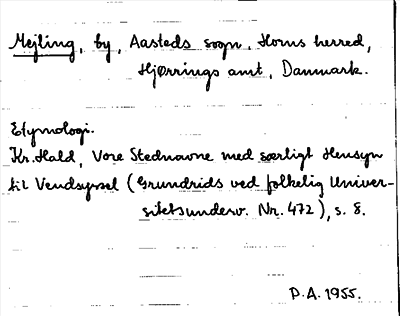 Mejling, by, Aasteds sogn, Horns herred,
Hjørrings amt, Danmark.
Etymologi.
Kr. Hald, Vore Stednavne med særligt Hensyn
til Vendsyssel (Grundrids ved folkelig Univer-
sitetsunderv. Nr. 472), s. 8.
P.A. 1955.